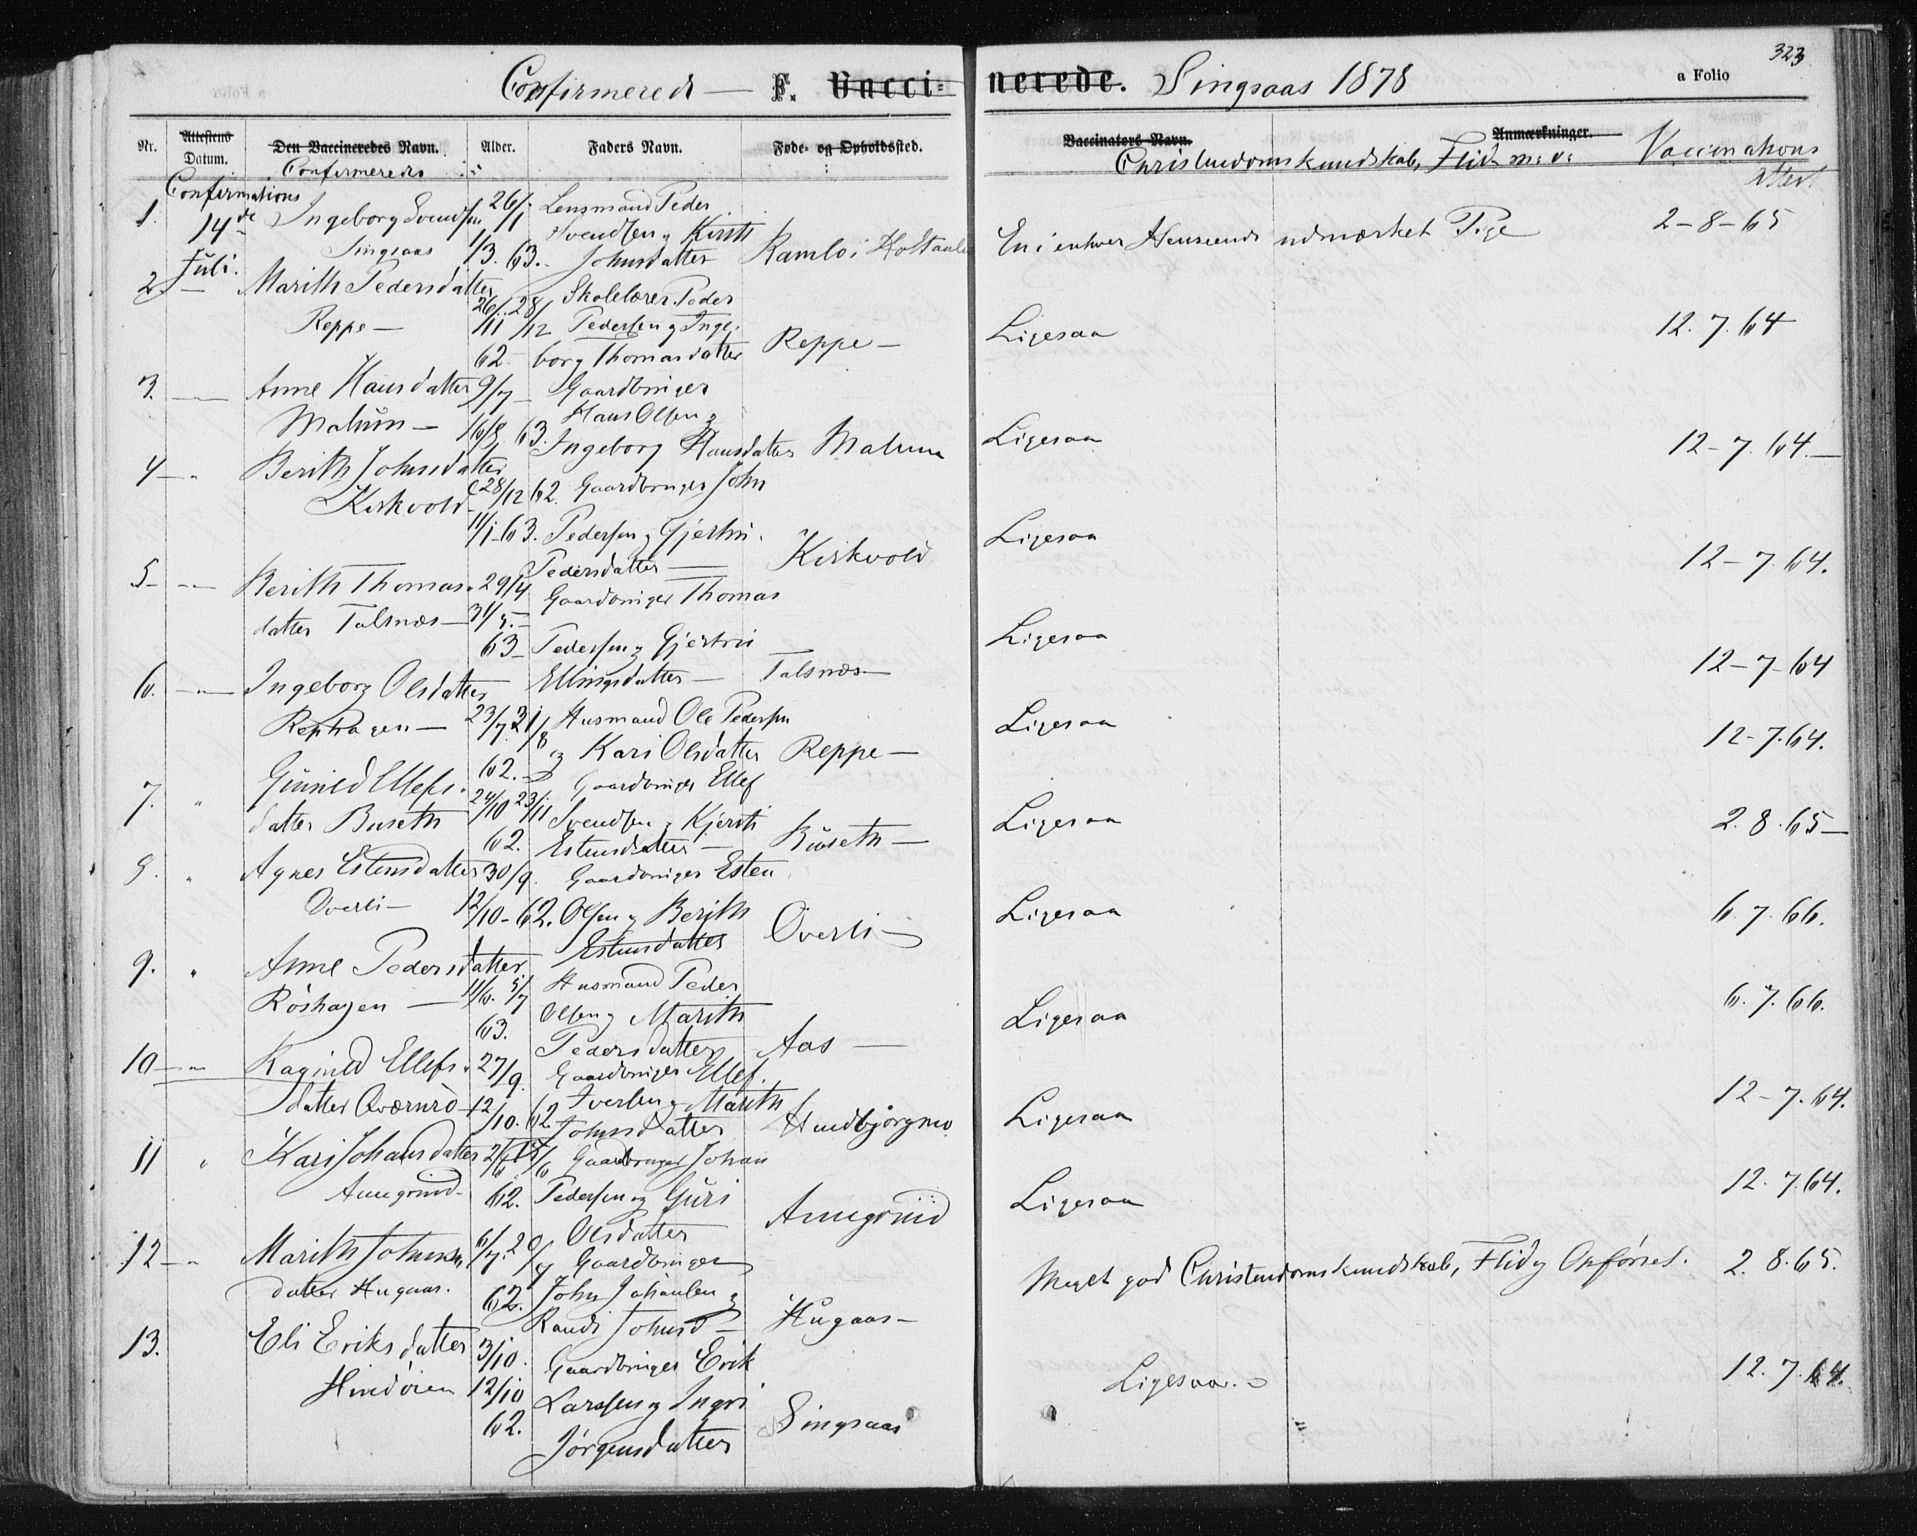 323
Confirmerede — F. Vaccinerede. Singsaas 1878
a Folio
Nr. Attestens Datum. Den Vaccineredes Navn. Alder. Faders Navn. Føde- og Opholdssted. Vaccinators Navn. Anmærkninger.
Confirmeredes Christendomskundskab, Flid m: v: Vaccinations
Confirmations attest
1. 14de Juli. Ingeborg Svendsen Singsaas
26/1 1/3. 63.
Lensmand Peder
Svendsen og Kirsti
Johnsdatter
Ramlo i Holtaalen
En i enhver Henseende udmærket Pige
2-8-65
2. — Marith Pedersdatter
Reppe —
26/11 28/12 62
Skolelærer Peder
Pedersen og Inge-
borg Thomasdatter
Reppe —
Ligesaa
12. 7. 64
3. — Anne Hansdatter
Malum —
9/7 16/8 63.
Gaardbruger
Hans Olsen og
Ingeborg Hansdatter
Malum
Ligesaa
12-7. 64.—
4 — " Berith Johnsdatter
Kirkvold
28/12 62.
11/1-63.
Gaardbruger John
Pedersen og Gjertru
Pedersdatter —
Kirkvold
Ligesaa
12-7. 64.
5 — Berith Thomas-
datter Talsnæs —
29/4 31/5.—
63
Gaardbruger Thomas
Pedersen og Gjertru
Ellingsdatter —
Talsnæs —
Ligesaa
12-7-64
6. — Ingeborg Olsdatter
Rephagen —
23/7. 31/8
62.—
Husmand Ole Pedersen
og Kari Olsdatter
Reppe —
Ligesaa
12-7.64.
7. " Gunild Ellefs-
datter Buseth
24/10 23/11
62.
Gaardbruger Ellef
Svendsen og Kjersti
Estensdatter —
Buseth —
Ligesaa
2. 8. 65—
8. " Agnes Estensdatter
Overli —
30/9.
12/10-62.
Gaardbruger Esten
Olsen og Berith
Estensdatter
Overli —
Ligesaa
6. 7. 66.
9. " Anne Pedersdatter
Röshagen —
11/6. 5/7
63.
Husmand Peder
Olsen og Marith
Pedersdatter
Aas —
Ligesaa
6. 7. 66.
10 — Ragnild Ellefs-
datter
27/9.
12/10. 62.
Gaardbruger Ellef
Iversen og Marith
Johnsdatter
Ligesaa
12-7. 64.
11 " Kari Johansdatter
Amegrind
62.
Gaardbruger Johan
Pedersen og Guri
Olsdatter
Ligesaa
12. 7.64.
12 — " Marith Johnsen
datter Hugaas.
62.
Gaardbruger
John Johansen og
Randi Johnsd —
Hugaas —
Meget god Christendomskundskab, Flid og Opførsel.
2. 8.65.
13. Eli Eriksdatter
3/10.
12/10
62.
Gaardbruger Erik
Larssen og Ingri
Jörgensdatter
Singsaas
Ligesaa.
12. 7. 64.